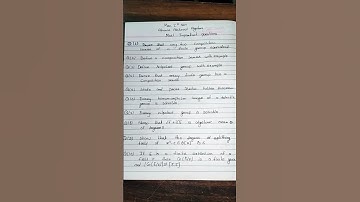 Msc I st sem
Advance Abstract Algebra
Most Important Questions
Q.1) Prove that any two composition
series of a finite group equivalent
Q.2) Define a composition series with example
Q.3) Define Solvable group with example
Q.4) Prove that every finite group has a
composition series
Q.5) State and Prove Jordan Holder theorem
Q.6) Every homomorphic image of a solvable
group is solvable
Q.7) Every nilpotent group is solvable
Q.8) Show that √2+√3 is algebraic over Q
of degree 4
Q.9) Show that the degree of splitting
field of over is 6
Q.10) If E is a finite extension of a
field F, then G(E/F) is a finite group
and |G(E/F)| ≤ [E:F]